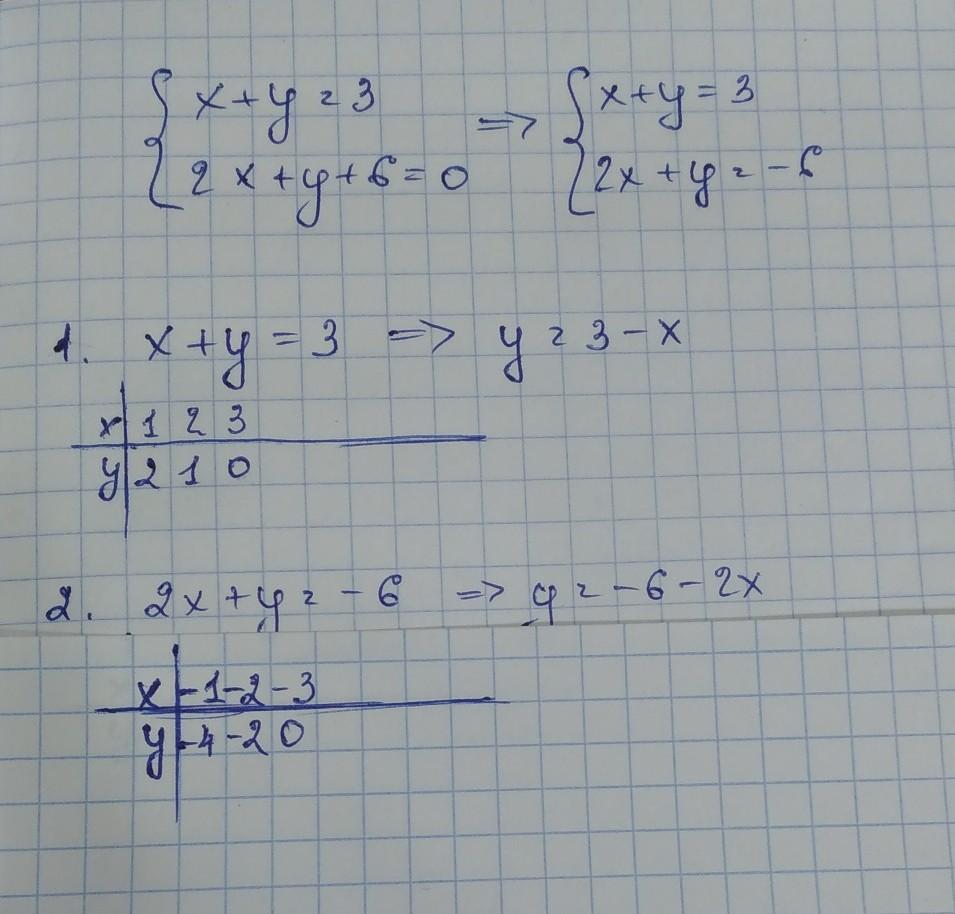 x + y = 3 => x + y = 3
2x + y + 6 = 0 2x + y = -6
1. x + y = 3 => y = 3 - x
x 1 2 3
y 2 1 0
2. 2x + y = -6 => y = -6 - 2x
x -1 -2 -3
y -4 -2 0